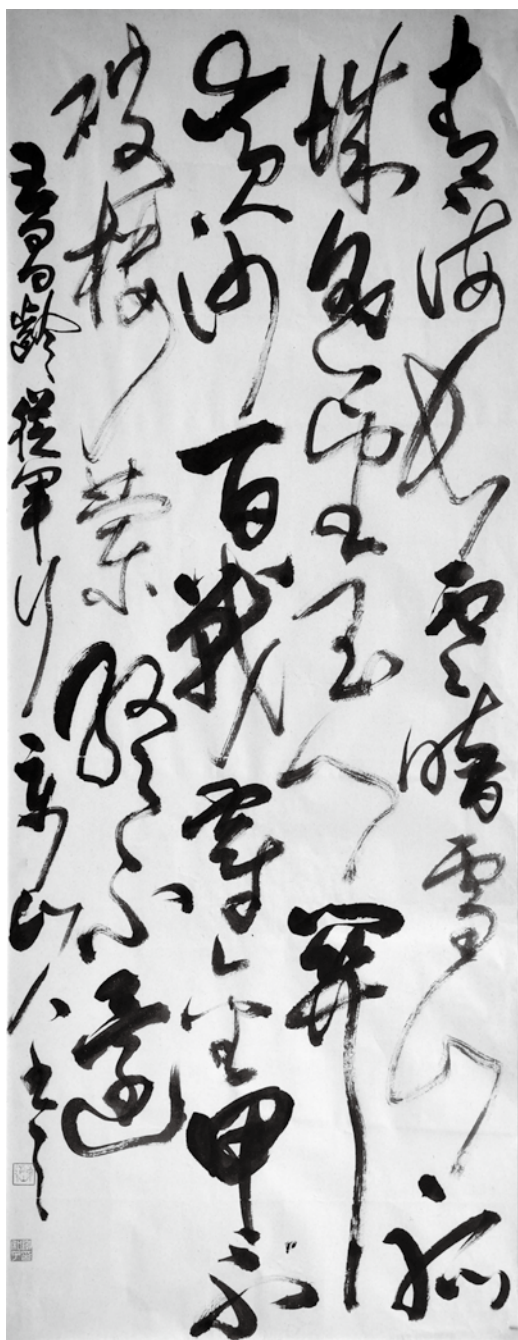 青海長雲暗雪山孤
城遥望玉门關
黄沙百戰穿金甲不
破樓蘭終不還
王昌齡從軍行 山人書